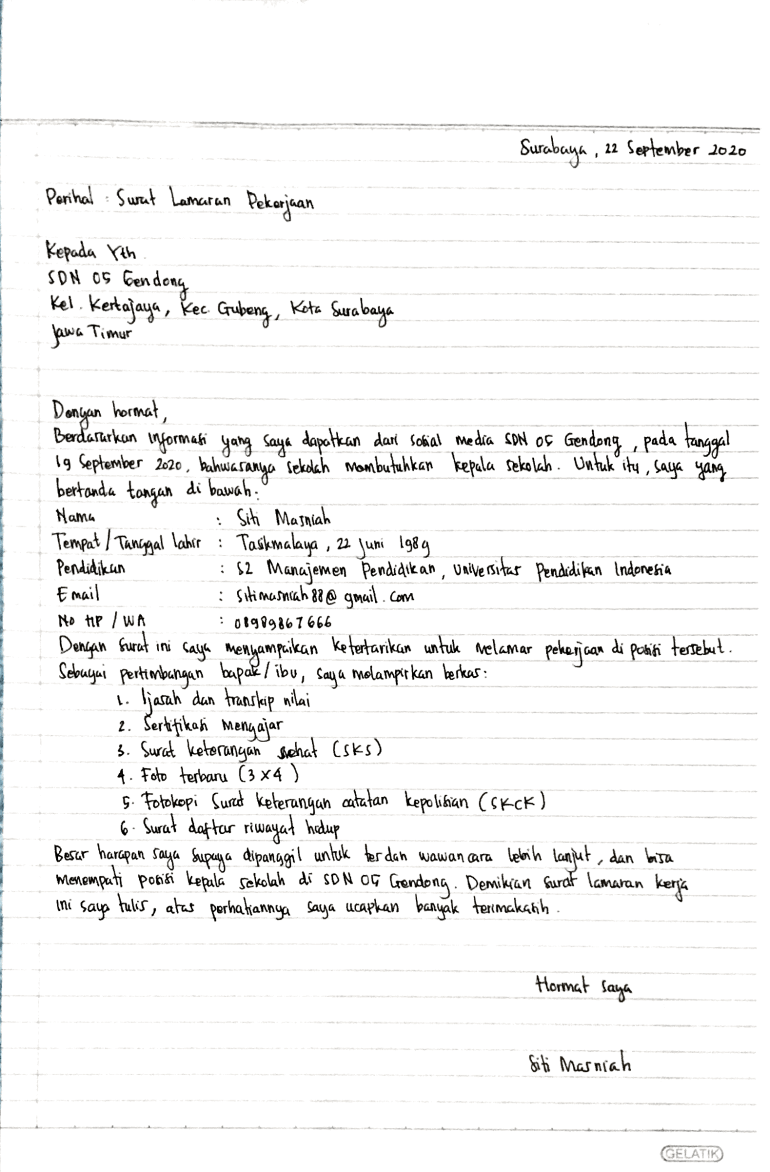 Surabaya, 22 September 2020
Perihal : Surat Lamaran Pekerjaan
Kepada Yth
SDN 05 Gendong
Kel. Kertajaya, Kec. Gubeng, Kota Surabaya
Jawa Timur
Dengan hormat,
Berdasarkan informasi yang saya dapatkan dari sosial media SDN 05 Gendong, pada tanggal
19 September 2020, bahwasanya sekolah membutuhkan kepala sekolah. Untuk itu, saya yang
bertanda tangan di bawah:
Nama : Siti Masniah
Tempat / Tanggal lahir : Tasikmalaya, 22 Juni 1989
Pendidikan : S2 Manajemen Pendidikan, Universitas Pendidikan Indonesia
Email : sitimasniah88@gmail.com
No HP / WA : 08989867666
Dengan surat ini saya menyampaikan ketertarikan untuk melamar pekerjaan di posisi tersebut.
Sebagai pertimbangan bapak/ibu, saya melampirkan berkas:
1. Ijasah dan transkip nilai
2. Sertifikasi Mengajar
3. Surat keterangan sehat (SKS)
4. Foto terbaru (3x4)
5. Fotokopi Surat keterangan catatan kepolisian (SKCK)
6. Surat daftar riwayat hidup
Besar harapan saya supaya dipanggil untuk tes dan wawancara lebih lanjut, dan bisa
menempati posisi kepala sekolah di SDN 05 Gendong. Demikian surat lamaran kerja
ini saya tulis, atas perhatiannya saya ucapkan banyak terimakasih.
Hormat saya
Siti Masniah
GELATIK